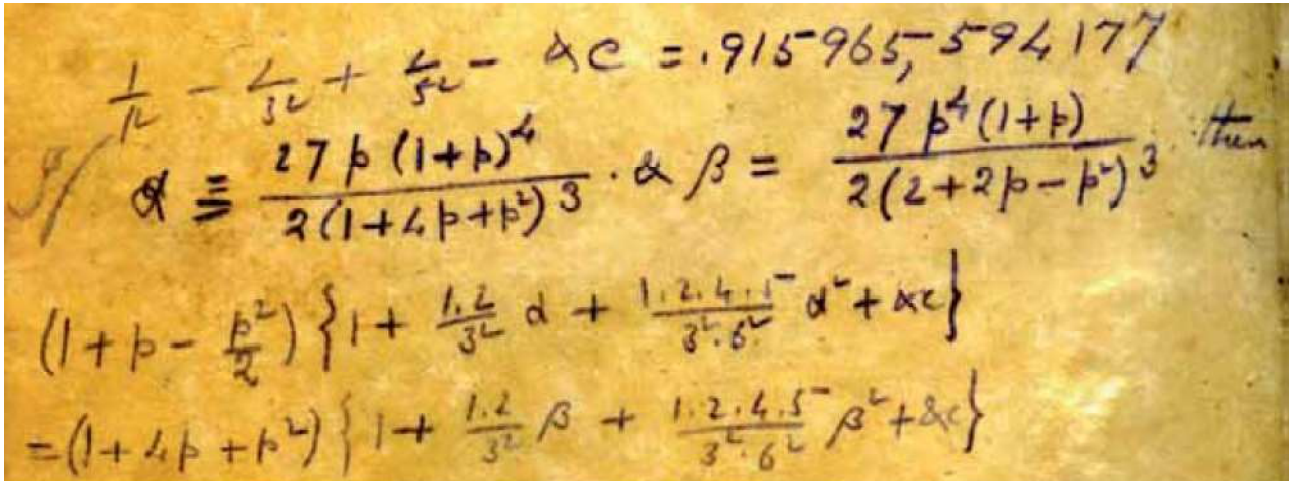 1/1² - 1/3² + 1/5² - &c = .915965,594177
If α = 27p(1+p)⁴ / 2(1+4p+p²)³ . & β = 27p⁴(1+p) / 2(2+2p-p²)³ then
(1+p - p²/2) {1 + 1.2/3² α + 1.2.4.5/3².6² α² + &c}
= (1+4p+p²) {1 + 1.2/3² β + 1.2.4.5/3².6² β² + &c}